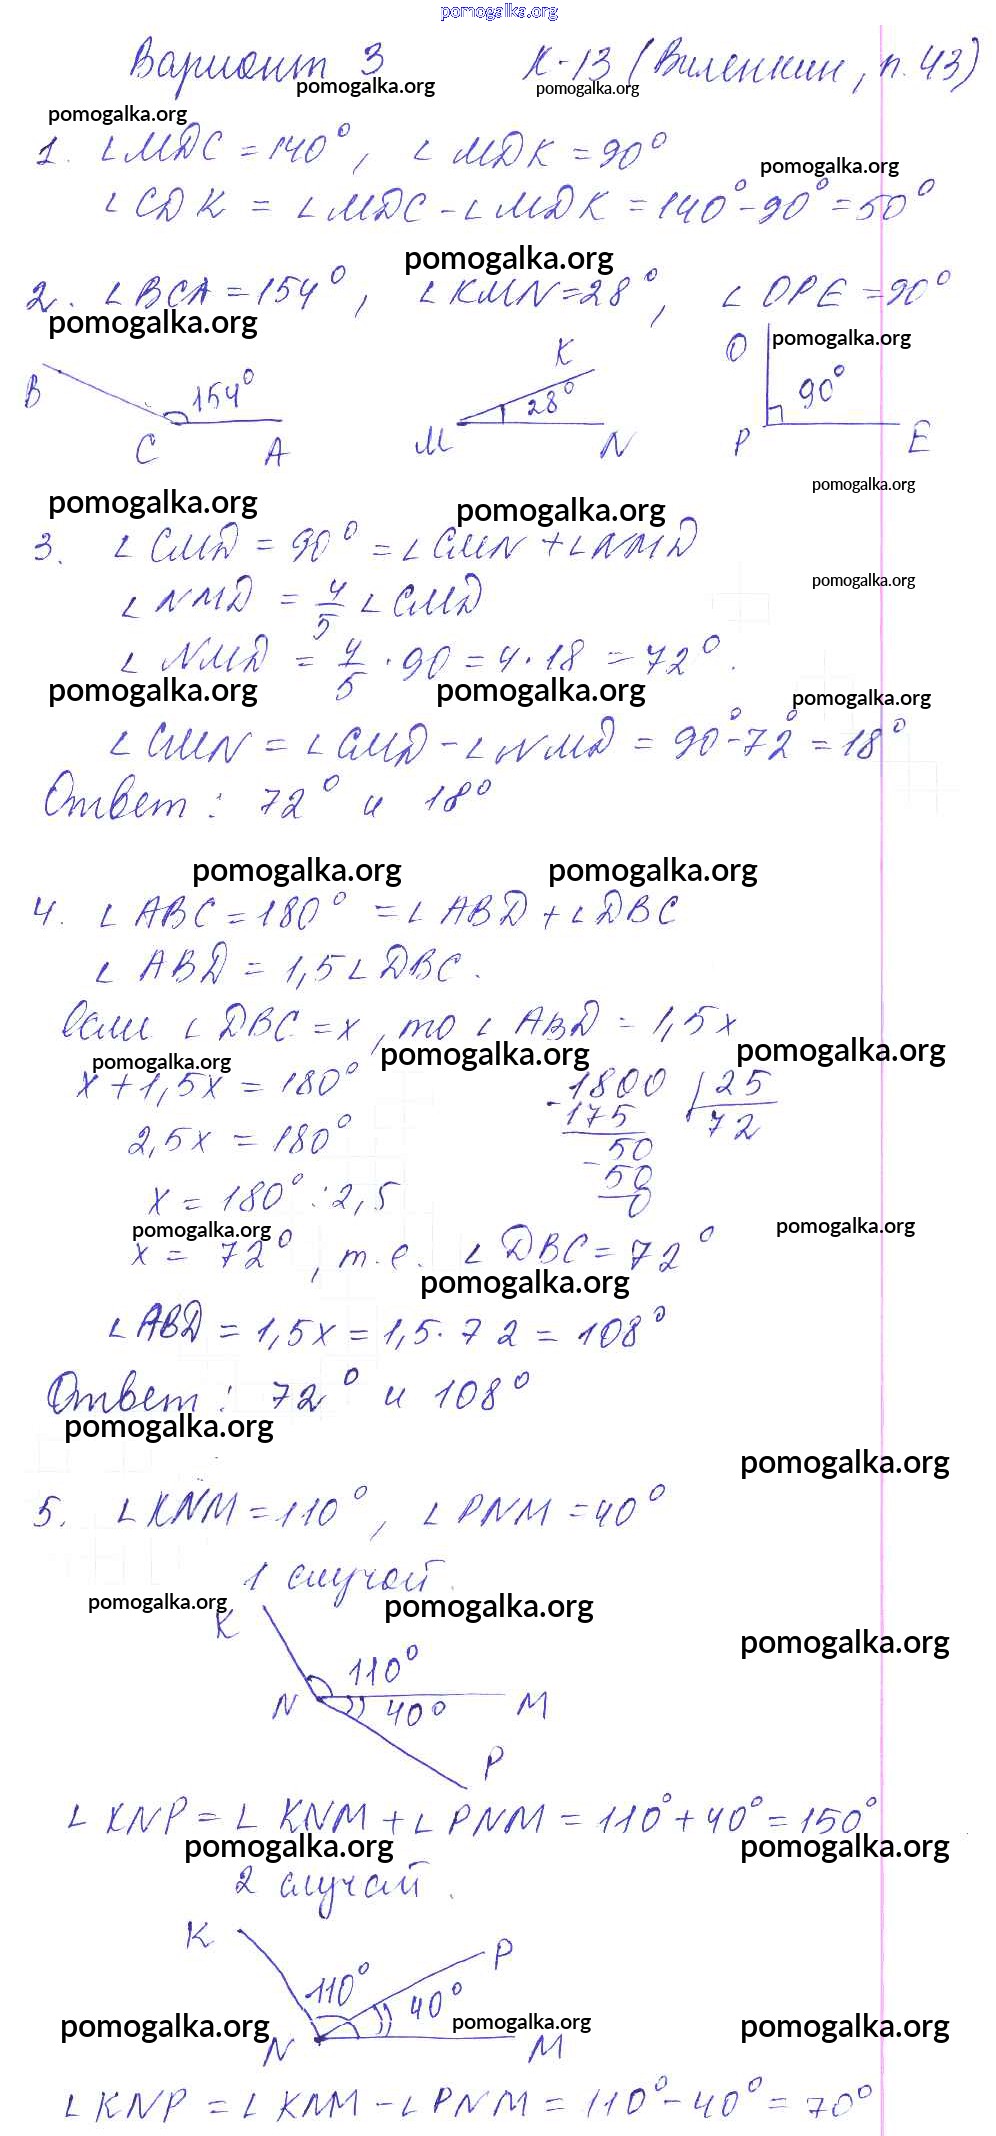 pomogalka.org
Вариант 3 К-13 (Виленкин, п. 43)
pomogalka.org pomogalka.org
pomogalka.org
1. ∠MDC = 140°, ∠MDK = 90°
pomogalka.org
∠CDK = ∠MDC - ∠MDK = 140° - 90° = 50°
pomogalka.org
2. ∠BCA = 154°, ∠KMN = 28°, ∠OPE = 90°
pomogalka.org
pomogalka.org
B 154° C A
K 28° M N
O 90° P E
pomogalka.org
pomogalka.org pomogalka.org
3. ∠CMD = 90° = ∠CMN + ∠NMD
pomogalka.org
∠NMD = 4/5 ∠CMD
∠NMD = 4/5 · 90 = 4 · 18 = 72°.
pomogalka.org pomogalka.org pomogalka.org
∠CMN = ∠CMD - ∠NMD = 90° - 72° = 18°
Ответ: 72° и 18°
pomogalka.org pomogalka.org
4. ∠ABC = 180° = ∠ABD + ∠DBC
∠ABD = 1,5∠DBC.
Если ∠DBC = x, то ∠ABD = 1,5x
pomogalka.org pomogalka.org pomogalka.org
x + 1,5x = 180°
2,5x = 180°
x = 180° : 2,5
1800 25
- 175 72
50
- 50
0
pomogalka.org pomogalka.org
x = 72°, т.е. ∠DBC = 72°
pomogalka.org
∠ABD = 1,5x = 1,5 · 72 = 108°
Ответ: 72° и 108°
pomogalka.org
pomogalka.org
5. ∠KNM = 110°, ∠PNM = 40°
1 случай.
pomogalka.org pomogalka.org
pomogalka.org
K
110°
N 40° M
P
∠KNP = ∠KNM + ∠PNM = 110° + 40° = 150°
pomogalka.org pomogalka.org
2 случай.
K P
110° 40°
pomogalka.org pomogalka.org pomogalka.org
N M
∠KNP = ∠KNM - ∠PNM = 110° - 40° = 70°